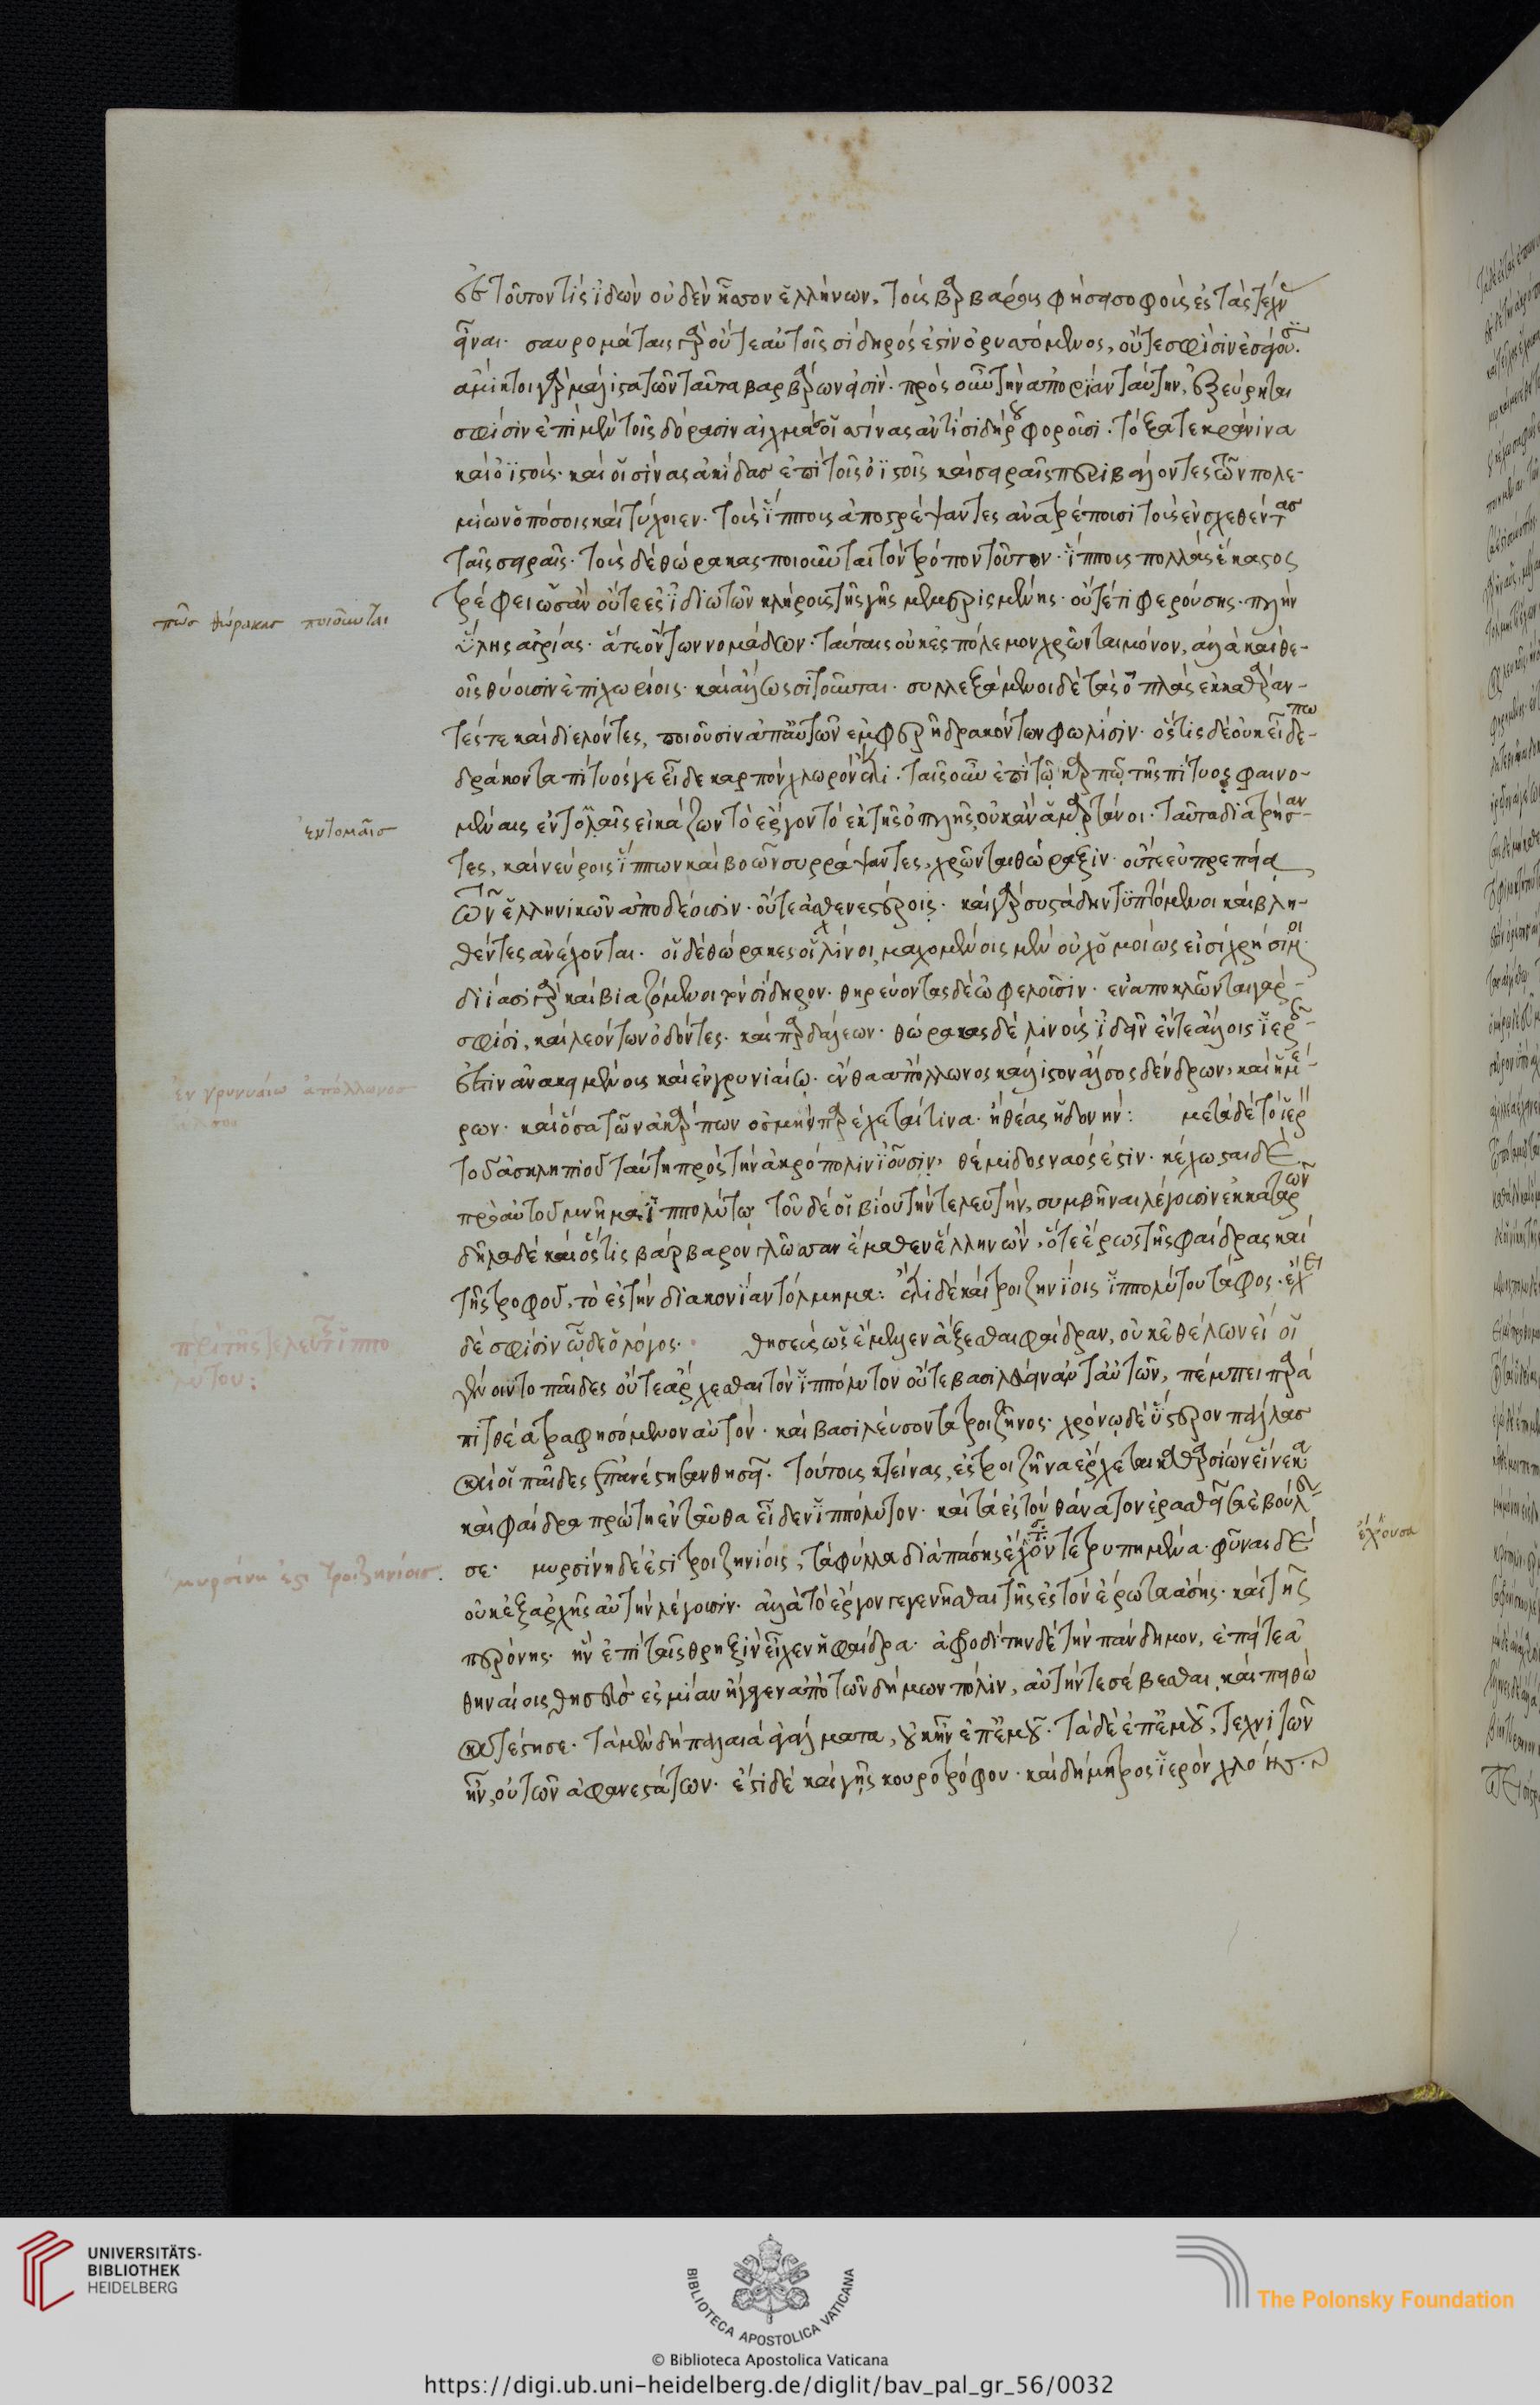 ἐς τοῦτόν τις ἰδὼν οὐδὲν ἧσσον ἑλλήνων, τοὺς βαρβάρους φήσει σοφοὺς ἐς τὰς τέχνας
εἶναι. σαυρομάταις γὰρ οὔτε αὐτοῖς σίδηρός ἐστιν ὀρυσσόμενος, οὔτε σφίσιν ἐσάγουσιν.
ἄμικτοι γὰρ μάλιστα τῶν ταύτῃ βαρβάρων εἰσίν. πρὸς οὖν τὴν ἀπορίαν ταύτην, ἐξεύρηται
σφίσιν ἐπὶ μὲν τοῖς δόρασιν αἰχμὰς ὀϊσίνας ἀντὶ σιδήρου φοροῦσι. τόξα τε κράνινα
καὶ ὀϊστούς. καὶ ὀϊσίνας ἀκίδας ἐπὶ τοῖς ὀϊστοῖς καὶ σειραῖς περιβαλόντες τῶν πολε-
μίων ὁπόσους καὶ τύχοιεν. τοὺς ἵππους ἀποστρέψαντες ἀνατρέπουσι τοὺς ἐνσχεθέντας
ταῖς σειραῖς. τοὺς δὲ θώρακας ποιοῦνται τὸν τρόπον τοῦτον. ἵππους πολλὰς ἕκαστος
τρέφει ὡς ἂν οὔτε ἐς ἰδιωτῶν κλήρους τῆς γῆς μεμερισμένης. οὔτέ τι φερούσης. πλὴν
ὕλης ἀγρίας. ἅτε ὄντων νομάδων. ταύταις οὐκ ἐς πόλεμον χρῶνται μόνον, ἀλλὰ καὶ θε-
οῖς θύουσιν ἐπιχωρίοις. καὶ ἄλλως σιτοῦνται. συλλεξάμενοι δὲ τὰς ὁπλὰς ἐκκαθάραν-
τές τε καὶ διελόντες, ποιοῦσιν ἀπ' αὐτῶν ἐμφερῆ δρακόντων φολίσιν. ὅστις δὲ οὐκ εἶδέ πω
δράκοντα πίτυός γε εἶδε καρπὸν χλωρὸν ἔτι. ταῖς οὖν ἐπὶ τῷ καρπῷ τῆς πίτυος φαινο-
μέναις ἐντολαῖς εἰκάζων τὸ ἔργον τὸ ἐκ τῆς ὁπλῆς οὐκ ἂν ἁμαρτάνοι. ταῦτα διατρήσαν-
τες, καὶ νεύροις ἵππων καὶ βοῶν συρράψαντες, χρῶνται θώραξιν. οὔτε εὐπρεπείᾳ
τῶν ἑλληνικῶν ἀποδέουσιν. οὔτε ἀσθενεστέροις. καὶ γὰρ συστάδην τυπτόμενοι καὶ βλη-
θέντες ἀνέχονται. οἱ δὲ θώρακες οἱ λινοῖ, μαχομένοις μὲν οὐχ ὁμοίως εἰσὶ χρήσιμοι.
διιᾶσι γὰρ καὶ βιαζόμενοι τὸν σίδηρον. θηρεύοντας δὲ ὠφελοῦσιν. ἐναποκλῶνται γάρ
σφισι, καὶ λεόντων ὀδόντες. καὶ παρδάλεων. θώρακας δὲ λινοῦς ἰδεῖν ἔν τε ἄλλοις ἱεροῖς
ἔστιν ἀνακειμένους καὶ ἐν γρυνίαίῳ. ἔνθα ἀπόλλωνος κάλλιστον ἄλσος δένδρων, καὶ ἡμέ-
ρων. καὶ ὅσα τῶν ἀκάρπων ὀσμὴν παρέχεταί τινα. ἢ θέας ἡδονήν: μετὰ δὲ τὸ ἱερὸν
τοῦ ἀσκληπιοῦ ταύτῃ πρὸς τὴν ἀκρόπολιν ἰοῦσιν, θέμιδος ναός ἐστιν. κέχωσται δὲ
πρὸ αὐτοῦ μνῆμα ἱππολύτῳ. τοῦ δέ οἱ βίου τὴν τελευτήν, συμβῆναι λέγουσιν ἐκ καταρῶν
δῆλα δὲ καὶ ὅστις βάρβαρον γλῶσσαν ἔμαθεν ἑλλήνων, ὅ τε ἔρως τῆς φαίδρας καὶ
τῆς τροφοῦ, τὸ ἐς τὴν διακονίαν τόλμημα: ἔστι δὲ καὶ τροιζηνίοις ἱππολύτου τάφος. ἔχει
δέ σφισιν ὧδε ὁ λόγος. θησεὺς ὡς ἔμελλεν ἄξεσθαι φαίδραν, οὐκ ἐθέλων εἴ οἱ
γένοιντο παῖδες οὔτε ἄρχεσθαι τὸν ἱππόλυτον οὔτε βασιλεύειν ἀντ' αὐτῶν, πέμπει παρὰ
πιτθέα τραφησόμενον αὐτόν. καὶ βασιλεύσοντα τροιζῆνος. χρόνῳ δὲ ὕστερον πάλλας
καὶ οἱ παῖδες ἐπανέστησαν θησεῖ. τούτους κτείνας, ἐς τροιζῆνα ἔρχεται καθαρσίων εἵνεκα
καὶ φαίδρα πρώτη ἐνταῦθα εἶδεν ἱππόλυτον. καὶ τὰ ἐς τὸν θάνατον ἐρασθεῖσα ἐβούλευ-
σε. μυρσίνη δέ ἐστι τροιζηνίοις, τὰ φύλλα διὰ πάσης ἔχοντε τετρυπημένα. φῦναι δὲ
οὐκ ἐξαρχῆς αὐτὴν λέγουσιν. ἀλλὰ τὸ ἔργον γεγενῆσθαι τῆς ἐς τὸν ἔρωτα ἄσης. καὶ τῆς
περόνης. ἣν ἐπὶ ταῖς θριξὶν εἶχεν ἡ φαίδρα. ἀφροδίτην δὲ τὴν πάνδημον, ἐπεί τε ἀ
θηναίους θησεὺς ἐς μίαν ἤγαγεν ἀπὸ τῶν δήμων πόλιν, αὐτήν τε σέβεσθαι, καὶ πειθὼ
κατέστησε. τὰ μὲν δὴ παλαιὰ ἀγάλματα, οὐκ ἦν ἐπ' ἐμοῦ. τὰ δὲ ἐπ' ἐμοῦ, τεχνιτῶν
ἦν, οὐ τῶν ἀφανεστάτων. ἔστι δὲ καὶ γῆς κουροτρόφου. καὶ δήμητρος ἱερὸν χλόης.
πῶς θώρακας ποιοῦνται
ἐντομαῖς
ἐν γρυνυαίω ἀπόλλωνος
ἄλσος
περὶ τῆς τελευτῆς ἱππο
λύτου:
μυρσίνη ἐστι τροιζηνίοις.
ἔχουσα
UNIVERSITÄTS-
BIBLIOTHEK
HEIDELBERG
BIBLIOTECA APOSTOLICA VATICANA
The Polonsky Foundation
© Biblioteca Apostolica Vaticana
https://digi.ub.uni-heidelberg.de/diglit/bav_pal_gr_56/0032